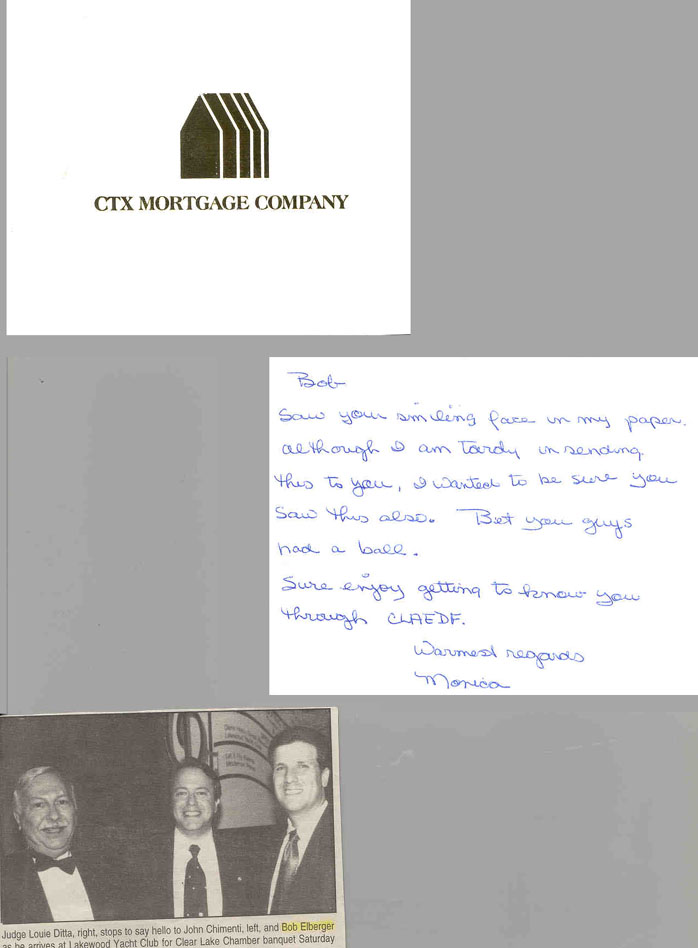 CTX MORTGAGE COMPANY
Bob
Saw your smiling face in my paper.
although I am tardy in sending
this to you, I wanted to be sure you
saw this also. Bet you guys
had a ball.
Sure enjoy getting to know you
through CLAEDF.
Warmest regards
Monica
Judge Louie Ditta, right, stops to say hello to John Chimenti, left, and Bob Elberger
as he arrives at Lakewood Yacht Club for Clear Lake Chamber banquet Saturday